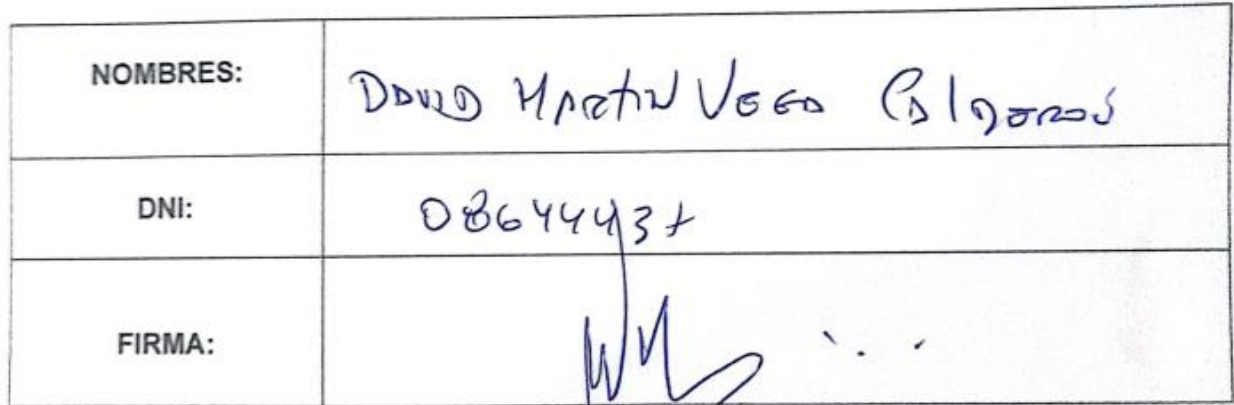 NOMBRES: DAVID MARTIN VEGA CALDERON
DNI: 08644437
FIRMA: